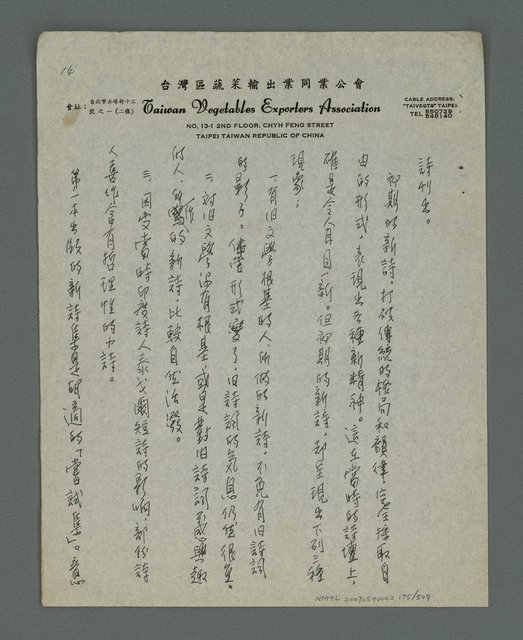 14
台灣區蔬菜輸出業同業公會
會址：台北市赤峰街十三號之一（二樓）
Taiwan Vegetables Exporters Association
NO, 13-1 2ND FLOOR, CHYH FENG STREET
TAIPEI TAIWAN REPUBLIC OF CHINA
CABLE ADDRESS:
"TAIVEGTS" TAIPEI
TEL
詩刊出。
初期的新詩，打破傳統的格局和韻律，完全採取自
由的形式，表現出各種新精神。這在當時的詩壇上，
確是令人耳目一新。但初期的新詩，却呈現出下列三種
現象：
一、有旧文學根基的人，所做的新詩，不免有旧詩詞
的影子。儘管形式變了，旧詩詞的気息仍然很重。
二、对旧文學沒有根基，或是對旧詩詞不感興趣
的人，所作的新詩，比較自然活潑。
三、因受當時印度詩人泰戈爾短詩的影响，部份詩
人喜作含有哲理性的小詩。
第一本出版的新詩集是胡適的「嘗試集」。意
NMTL 20070590002 175/509